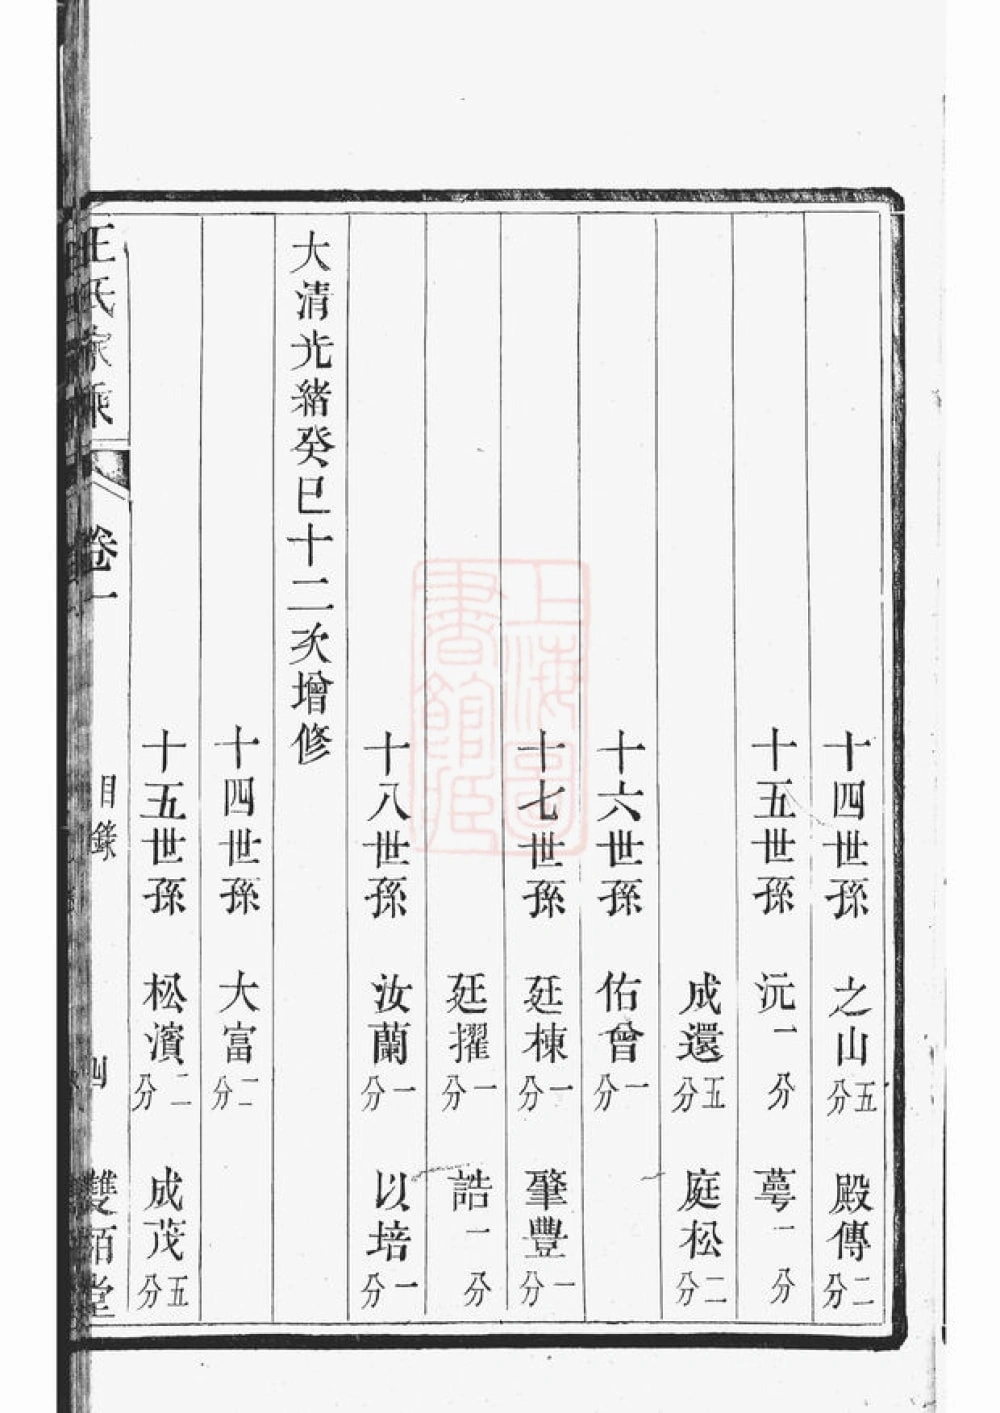 十四世孫 之山五分 殿傳二分
十五世孫 沅一分 蕚一分
成還五分 庭松二分
十六世孫 佑曾一分
十七世孫 廷棟一分 肇豐一分
廷擢一分 誥一分
十八世孫 汝蘭一分 以培一分
大清光緒癸巳十二次增修
十四世孫 大富二分
十五世孫 松濱二分 成茂五分
王氏家乘 卷一 目錄 四 雙栢堂
上海圖書館藏